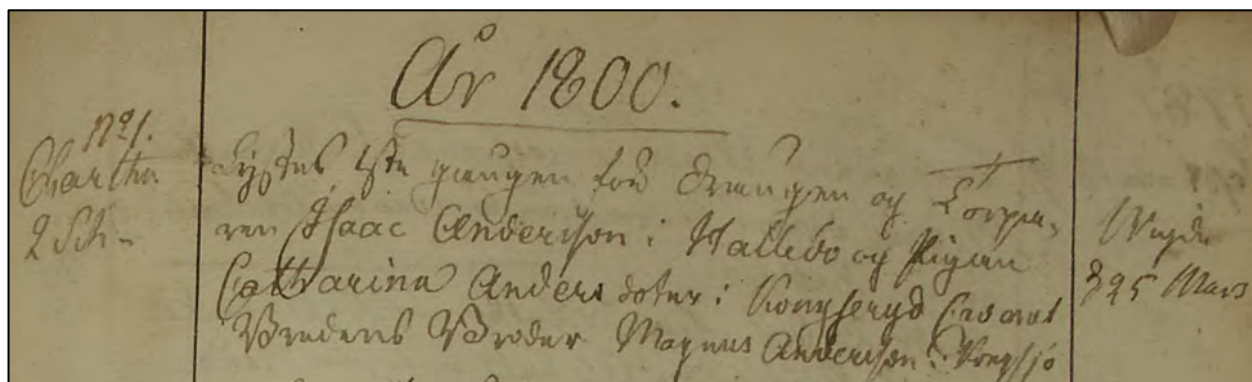 År 1800.
No 1.
Charthn
2 Sch-
Lystes 1sta gangen för Drängen og Torpa-
ren Isaac Anderson i Hallebo og Pigan
Catharina Anders doter i Kongseryd Caverat
Brudens Broder Magnus Anderson i
Wigde
d 25 Mars